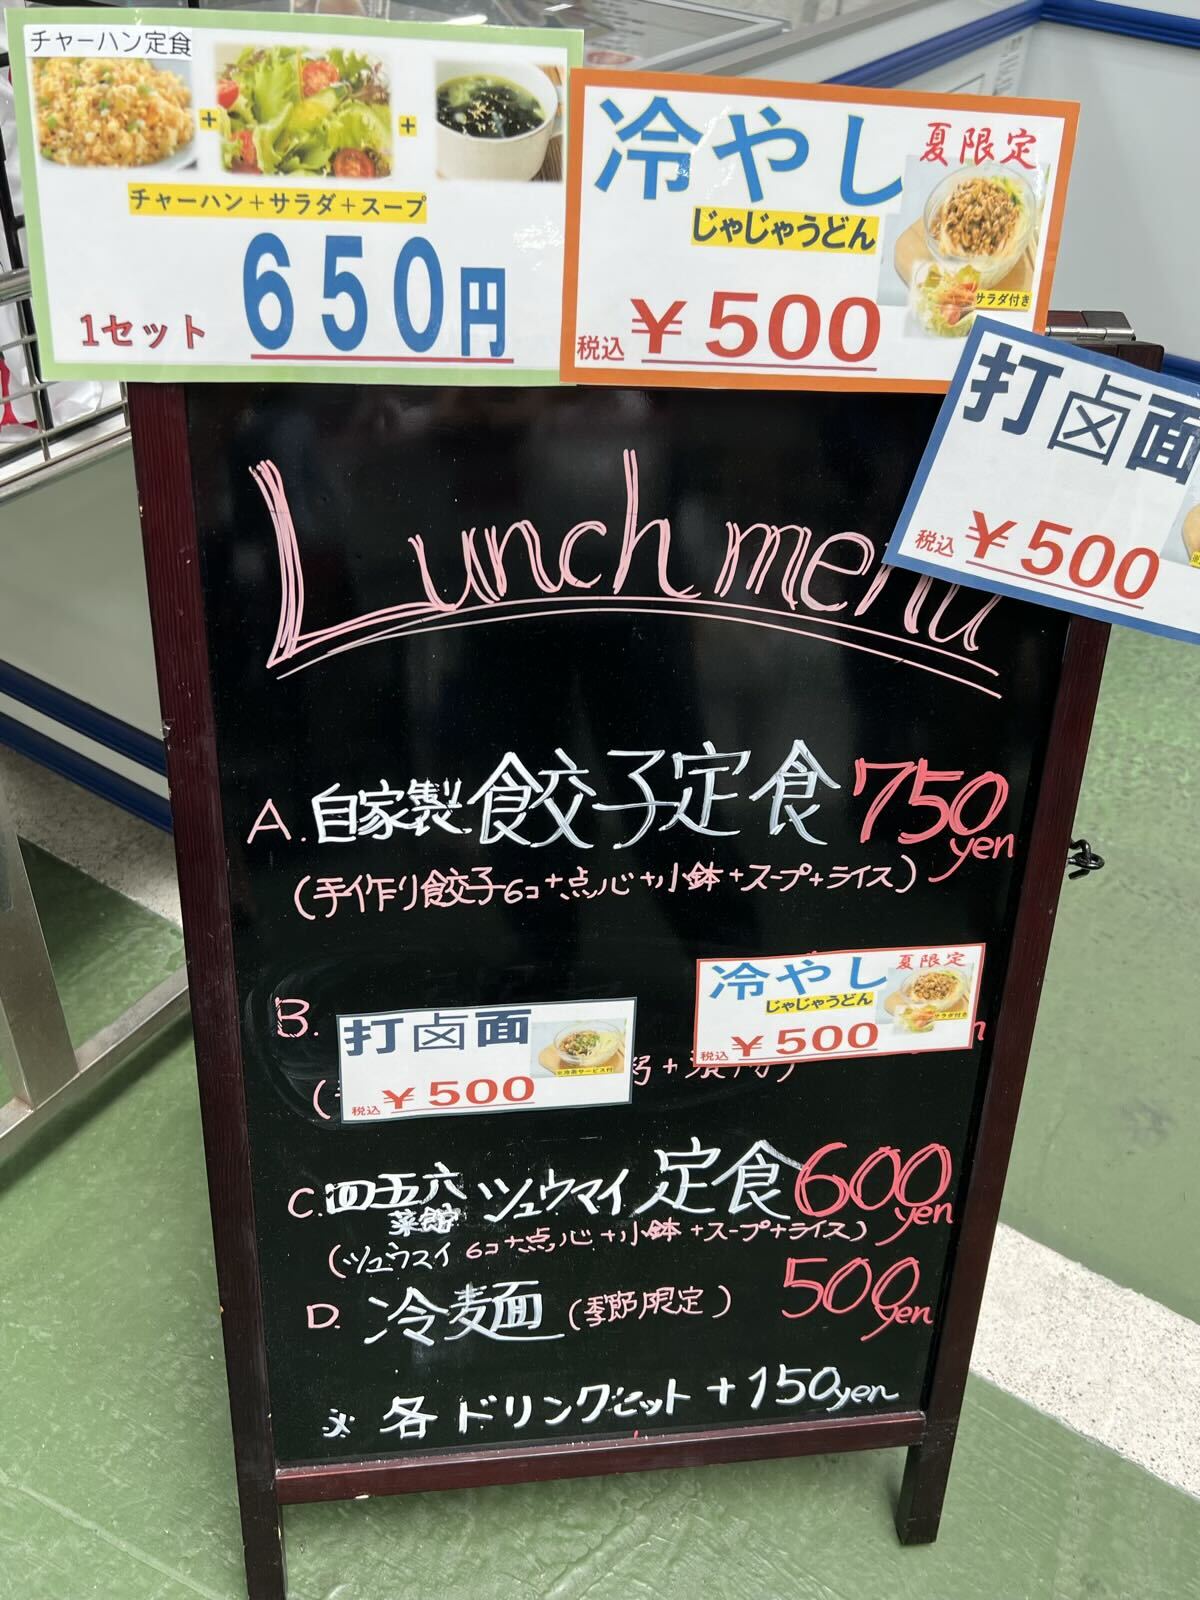 チャーハン定食
+
+
チャーハン+サラダ+スープ
1セット 650円
冷やし 夏限定
じゃじゃうどん
サラダ付き
税込 ¥500
打卤面
税込 ¥500
Lunch menu
A. 自家製 餃子定食 750yen
(手作り餃子6コ+点心+小鉢+スープ+ライス)
B.
打卤面
税込 ¥500
冷やし 夏限定
じゃじゃうどん
サラダ付き
税込 ¥500
C. 四五六菜館 ツュウマイ定食 600yen
(ツュウスイ 6コ+点心+小鉢+スープ+ライス)
D. 冷麺 (季節限定) 500yen
※ 各ドリンクセット +150yen